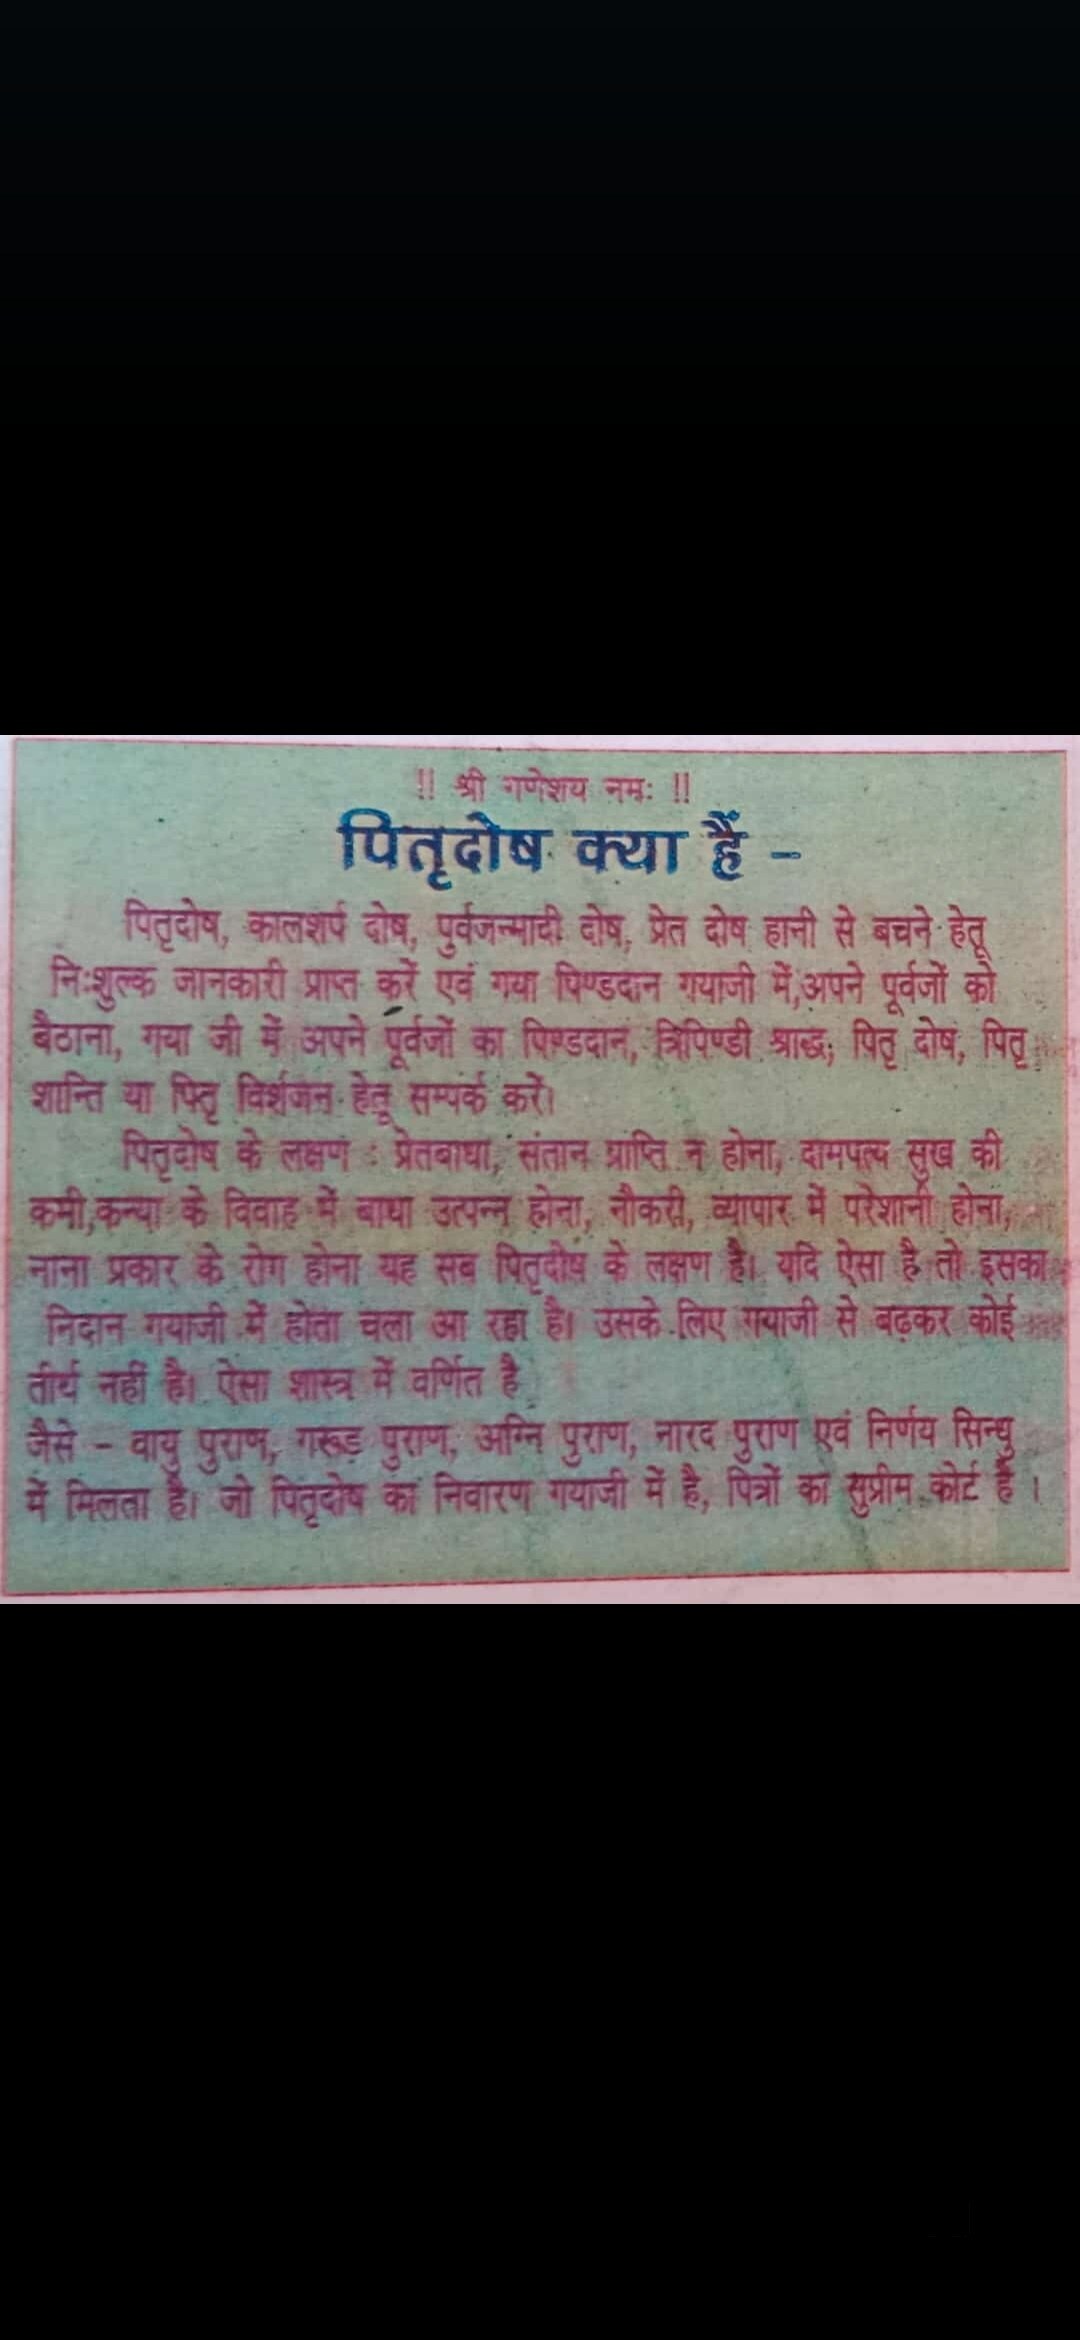 !! श्री गणेशय नमः !!
पितृदोष क्या हैं -
पितृदोष, कालशर्प दोष, पुर्वजन्मादी दोष, प्रेत दोष हानी से बचने हेतू
निःशुल्क जानकारी प्राप्त करें एवं गया पिण्डदान गयाजी में,अपने पूर्वजों को
बैठाना, गया जी में अपने पूर्वजों का पिण्डदान, त्रिपिण्डी श्राद्ध, पितृ दोष, पितृ
शान्ति या पितृ विर्शजन हेतू सम्पर्क करें।
पितृदोष के लक्षण : प्रेतबाधा, संतान प्राप्ति न होना, दामपत्य सुख की
कमी,कन्या के विवाह में बाधा उत्पन्न होना, नौकरी, व्यापार में परेशानी होना,
नाना प्रकार के रोग होना यह सब पितृदोष के लक्षण है। यदि ऐसा है तो इसका
निदान गयाजी में होता चला आ रहा है। उसके लिए गयाजी से बढ़कर कोई
तीर्थ नहीं है। ऐसा शास्त्र में वर्णित है
जैसे - वायु पुराण, गरूड़ पुराण, अग्नि पुराण, नारद पुराण एवं निर्णय सिन्धु
में मिलता है। जो पितृदोष का निवारण गयाजी में है, पित्रों का सुप्रीम कोर्ट हैं ।